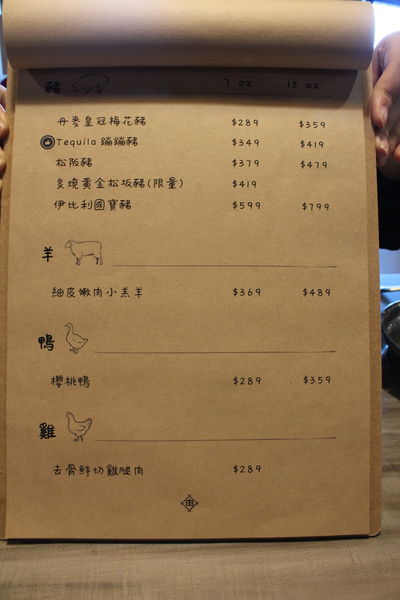 豬 7 oz 13 oz
丹麥皇冠梅花豬 $289 $359
Tequila 蹦蹦豬 $349 $419
松阪豬 $379 $479
炙燒黃金松坂豬(限量) $419
伊比利國寶豬 $599 $799
羊
細皮嫩肉小羔羊 $369 $489
鴨
櫻桃鴨 $289 $359
雞
去骨鮮切雞腿肉 $289
肉